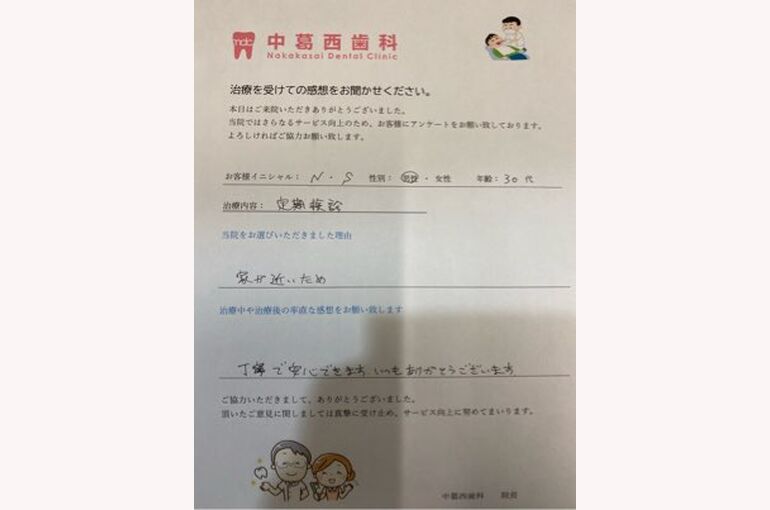 mdc 中葛西歯科
Nakakasai Dental Clinic
治療を受けての感想をお聞かせください。
本日はご来院いただきありがとうございました。
当院ではさらなるサービス向上のため、お客様にアンケートをお願い致しております。
よろしければご協力お願い致します。
お客様イニシャル： N・S 性別： 男性 ・ 女性 年齢：30 代
治療内容： 定期検診
当院をお選びいただきました理由
家が近いため
治療中や治療後の率直な感想をお願い致します
丁寧で安心できます いつもありがとうございます
ご協力いただきまして、ありがとうございました。
頂いたご意見に関しましては真摯に受け止め、サービス向上に努めてまいります。
中葛西歯科 院長